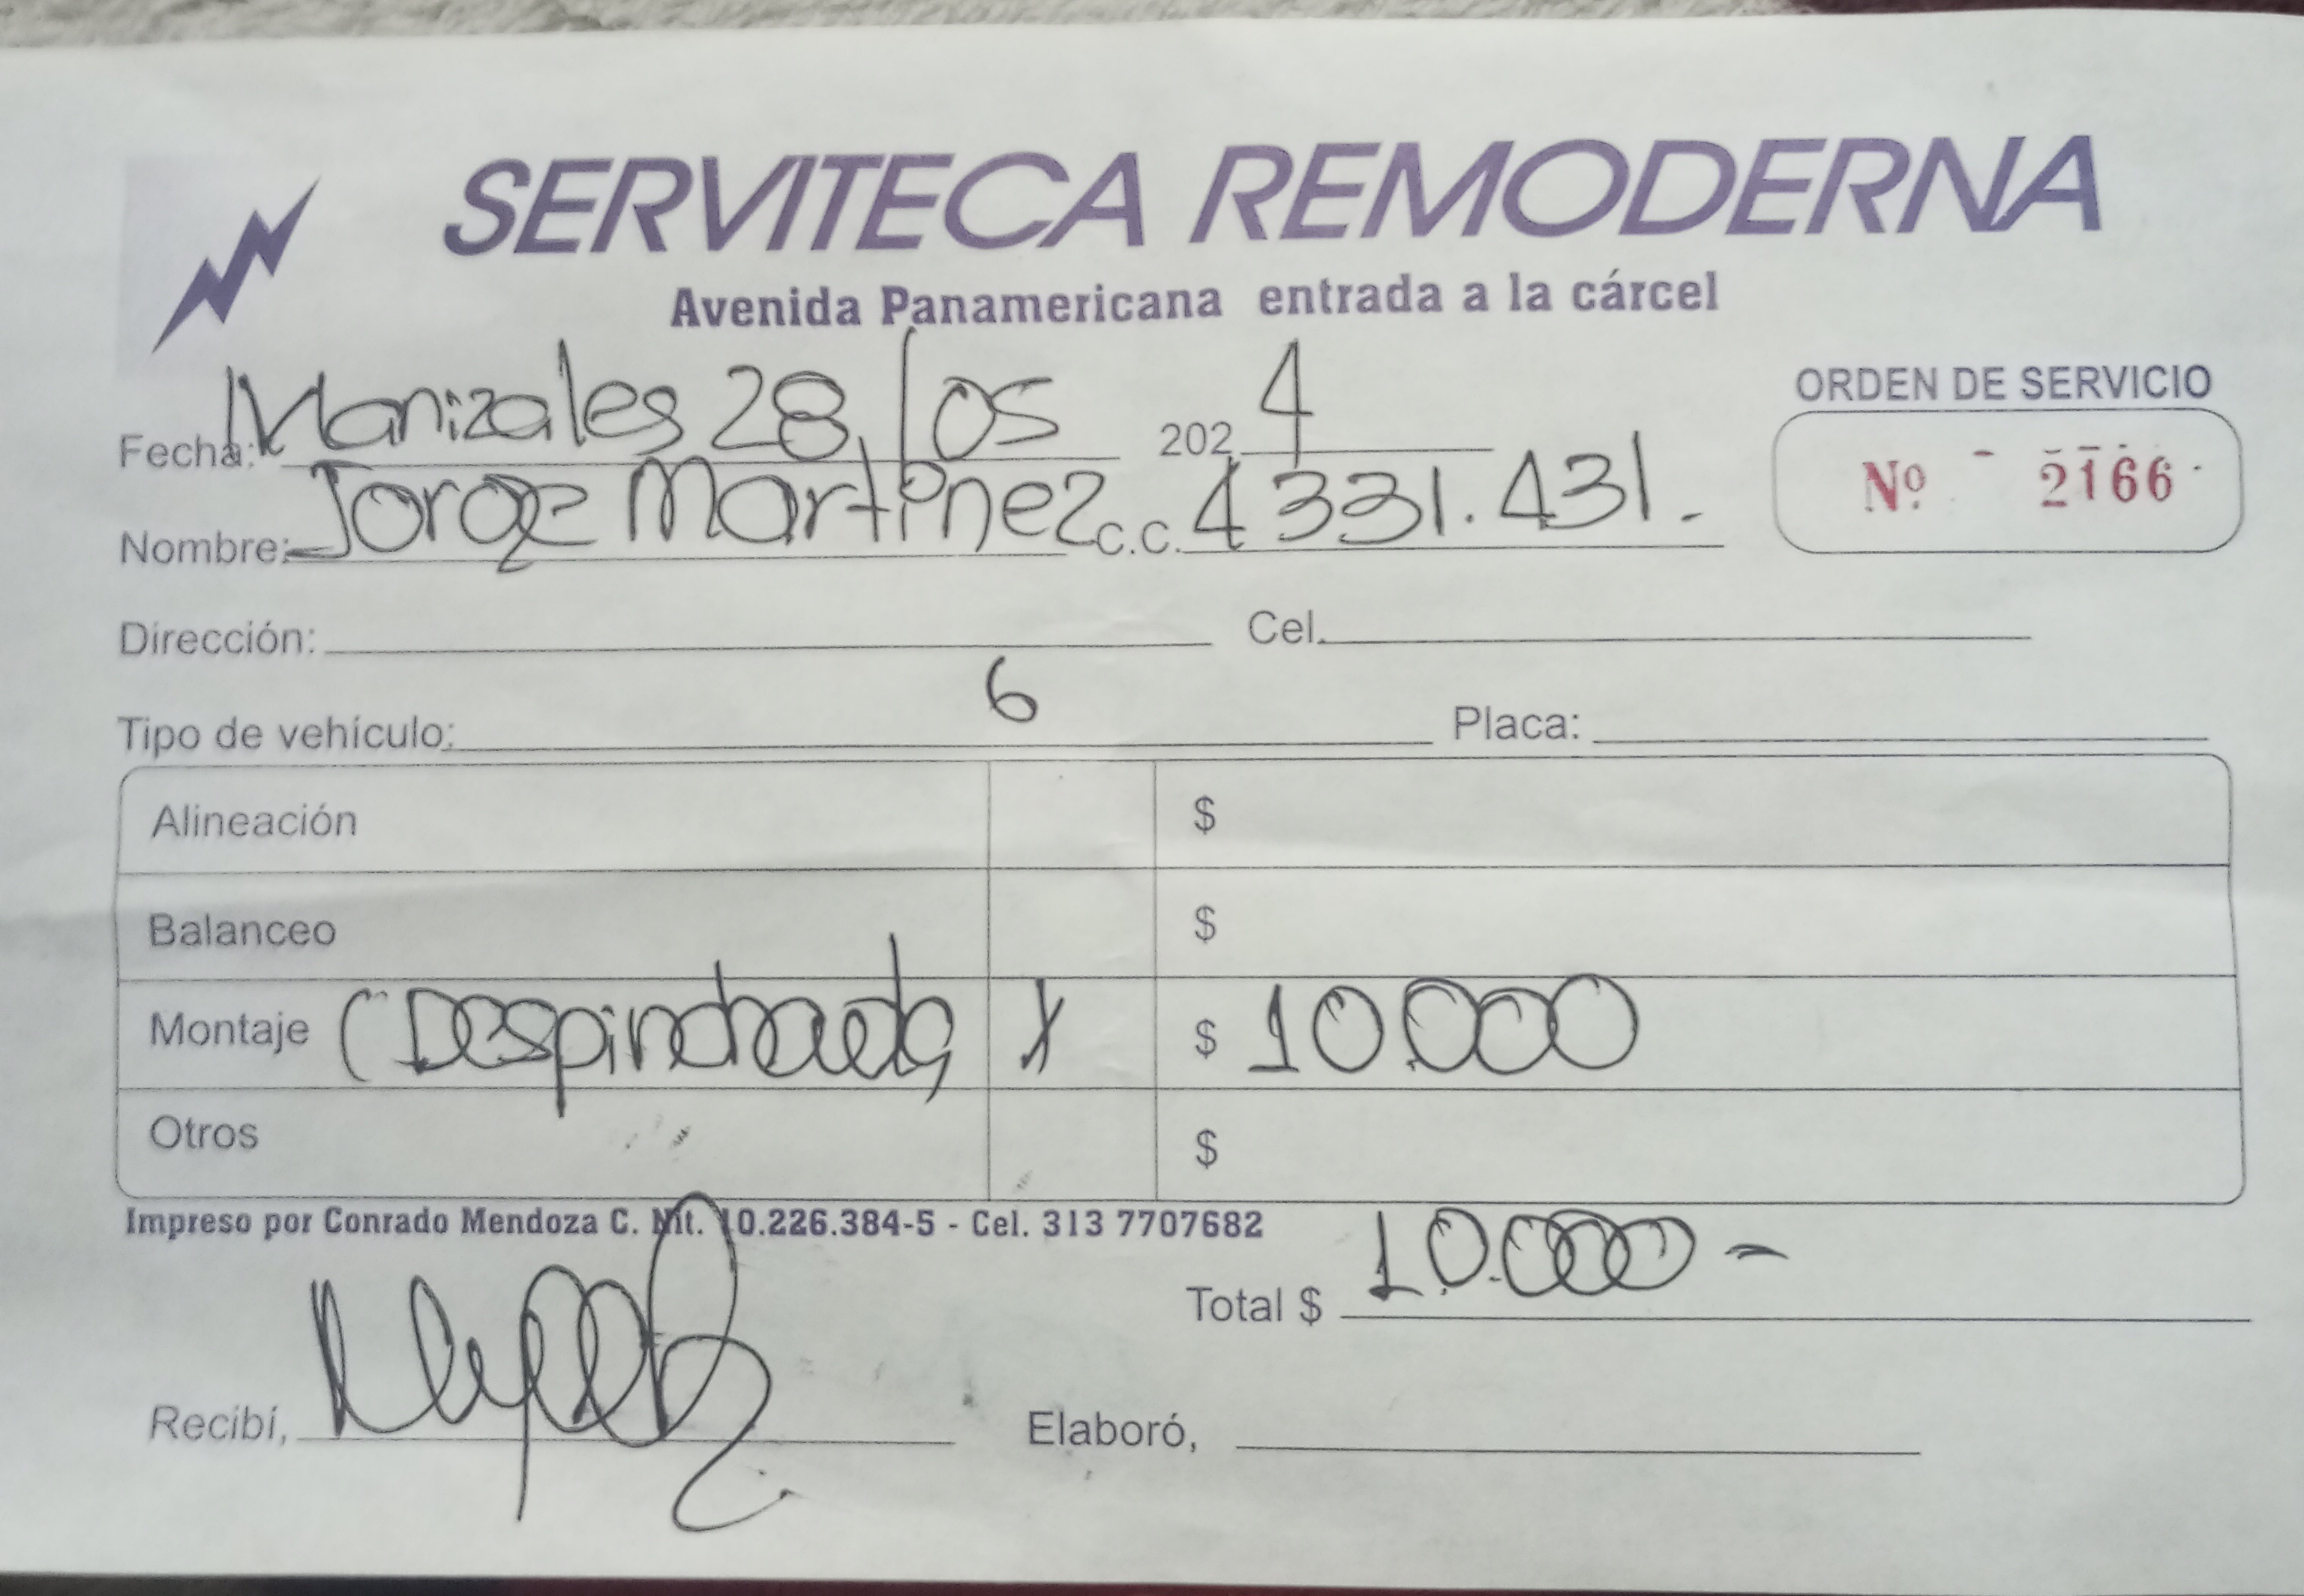 SERVITECA REMODERNA
Avenida Panamericana entrada a la cárcel
Fecha: Manizales 28/05 2024
ORDEN DE SERVICIO
Nº 2166
Nombre: Jorge Martinez c.c. 4331.431.
Dirección: Cel.
6
Tipo de vehículo: Placa:
Alineación $
Balanceo $
Montaje (Despinchada) X $ 10.000
Otros $
Impreso por Conrado Mendoza C. Nit. 10.226.384-5 - Cel. 313 7707682
Total $ 10.000 -
Recibí, Elaboró,